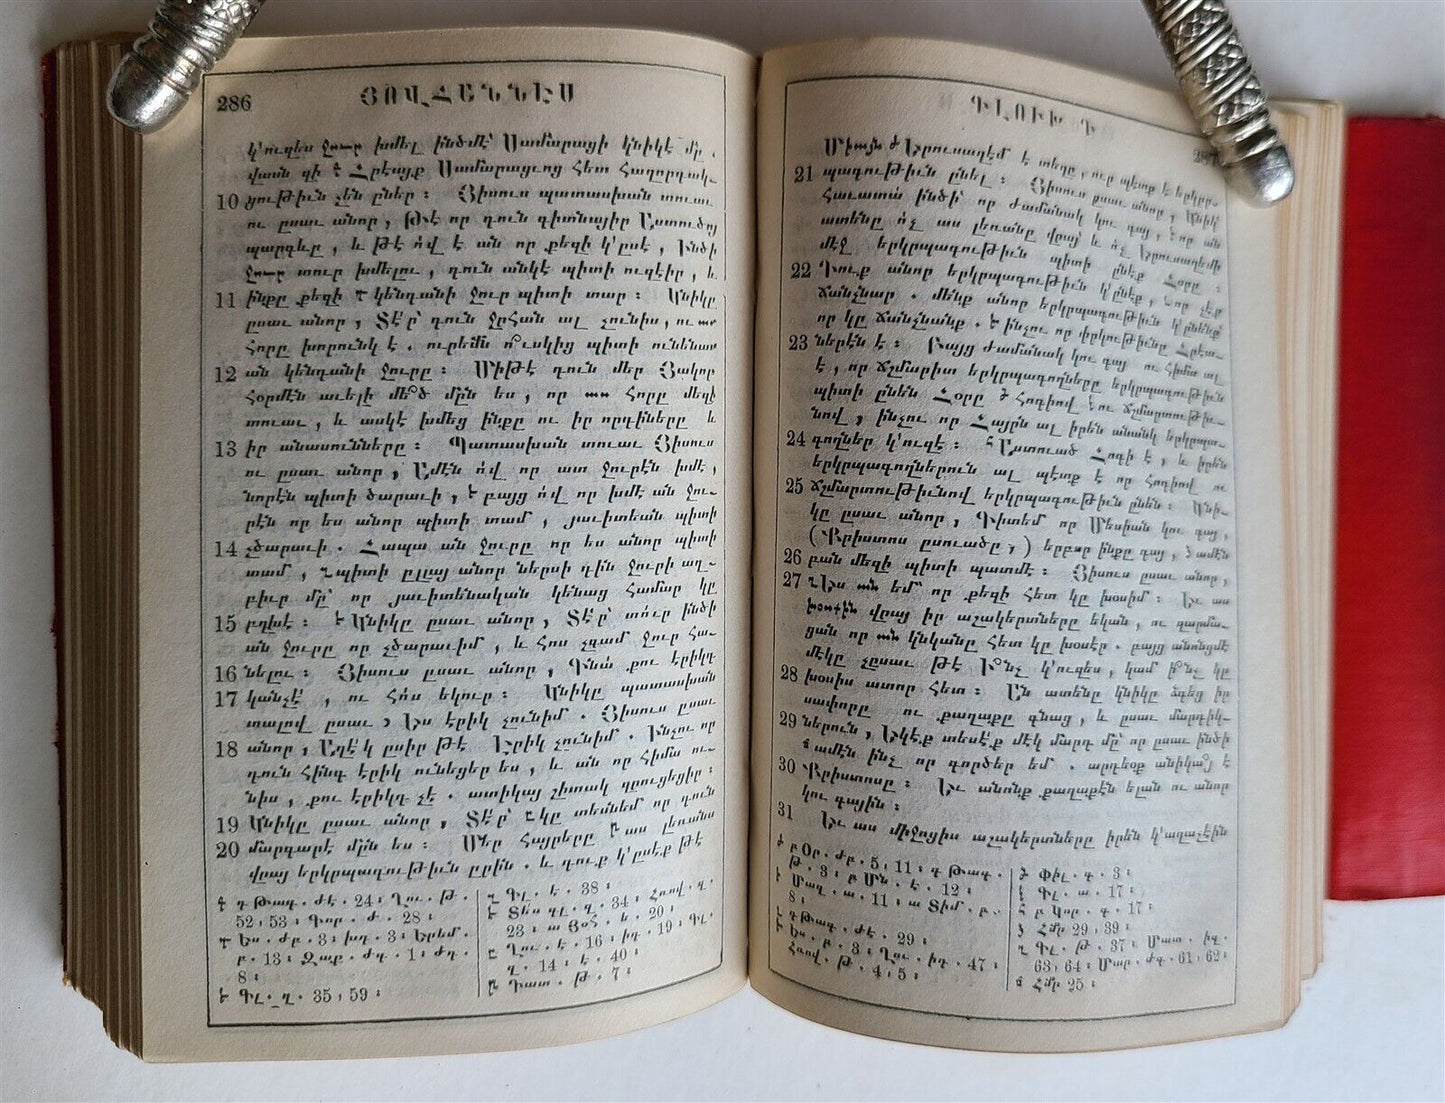 286
ՅՈՎՀԱՆՆԷՍ
կ՚ուզես ջուր խմել ինձմէ՝ Սամարացի կնիկէ մը.
վասն զի Հրէայք Սամարացւոց հետ հաղորդակ-
10 ցութիւն չեն ըներ։ Յիսուս պատասխան տուաւ
ու ըսաւ անոր, Թէ որ դուն գիտնայիր Աստուծոյ
պարգևը, և թէ ո՛վ է ան որ քեզի կ՚ըսէ, Ինծի
ջուր տուր խմելու, դուն անկէ պիտի ուզէիր, և
11 ինքը քեզի կենդանի ջուր պիտի տար։ Կնիկը
ըսաւ անոր, Տէ՛ր՝ դուն ջրհան ալ չունիս, ու աս
հորը խորունկ է. ուրեմն ո՞ւսկից պիտի ունենաս
12 ան կենդանի ջուրը։ Միթէ դուն մեր Յակոբ
հօրմէն աւելի մե՞ծ մըն ես, որ աս հորը մեզի
տուաւ, և ասկէ խմեց ինքը ու իր որդիները և
13 իր անասունները։ Պատասխան տուաւ Յիսուս
ու ըսաւ անոր, Ամէն ո՛վ որ ատ ջուրէն խմէ,
նորէն պիտի ծարաւի, բայց ո՛վ որ խմէ ան ջու-
րէն որ ես անոր պիտի տամ, յաւիտեան պիտի
14 չծարաւի. Հապա ան ջուրը որ ես անոր պիտի
տամ, պիտի ըլլայ անոր ներսի դին ջուրի աղ-
բիւր մը՝ որ յաւիտենական կենաց համար կը
15 բղխէ։ Կնիկը ըսաւ անոր, Տէ՛ր՝ տո՛ւր ինծի
ան ջուրը որ չծարաւիմ, և հոս չգամ ջուր հա-
16 նելու։ Յիսուս ըսաւ անոր, Գնա՛ քու էրիկդ
17 կանչէ՛, ու հոս եկուր։ Կնիկը պատասխան
տալով ըսաւ Ես էրիկ չունիմ. Յիսուս ըսաւ
18 անոր, Աղէ՛կ ըսիր թէ Էրիկ չունիմ. Ինչու որ
դուն հինգ էրիկ ունեցեր ես, և ան որ հիմա ու-
նիս, քու էրիկդ չէ. ատիկայ շիտակ զրուցեցիր։
19 Կնիկը ըսաւ անոր, Տէ՛ր՝ կը տեսնեմ որ դուն
20 մարգարէ մըն ես։ Մեր հայրերը աս լեռանս
վրայ երկրպագութիւն ըրին. և դուք կ՚ըսէք թէ
ԳԼՈՒԽ Դ
Միայն Երուսաղէմ է տեղը, ուր պէտք է երկըր-
21 պագութիւն ընել։ Յիսուս ըսաւ անոր, Կնի՛կ՝
հաւատա՛ ինծի՝ որ ժամանակ կու գայ, որ ան
ատենը ո՛չ աս լեռանը վրայ՝ և ո՛չ Երուսաղէմի
մէջ երկրպագութիւն պիտի ընէք Հօրը։
22 Դուք անոր երկրպագութիւն կ՚ընէք, որ չէք
ճանչնար. մենք անոր երկրպագութիւն կ՚ընենք՝
որ կը ճանչնանք. ինչու որ փրկութիւնը Հրէա-
23 ներէն է։ Բայց ժամանակ կու գայ ու հիմա ալ
է, որ ճշմարիտ երկրպագողները երկրպագութիւն
պիտի ընեն Հօրը հոգիով ու ճշմարտութիւ-
նով, ինչու որ Հայրն ալ իրեն անանկ երկրպա-
24 գողներ կ՚ուզէ։ Աստուած Հոգի է, և իրեն
երկրպագողներուն ալ պէտք է որ հոգիով ու
25 ճշմարտութիւնով երկրպագութիւն ընեն։ Կնի-
կը ըսաւ անոր, Գիտեմ որ Մեսիան կու գայ,
(Քրիստոս ըսուածը,) երբոր ինքը գայ, ամէն
26 բան մեզի պիտի պատմէ։ Յիսուս ըսաւ անոր,
27 Ես ան եմ՝ որ քեզի հետ կը խօսիմ։ Եւ աս
խօսքին վրայ իր աշակերտները եկան, ու զարմա-
ցան որ ան կնկանը հետ կը խօսէր. բայց անոնցմէ
մէկը չըսաւ թէ Ի՞նչ կ՚ուզես, կամ ի՞նչ կը
28 խօսիս ատոր հետ։ Ան ատենը կնիկը ձգեց իր
սափորը ու քաղաքը գնաց, և ըսաւ մարդիկ-
29 ներուն, Եկէք տեսէ՛ք մէկ մարդ մը՝ որ ըսաւ ինծի
ամէն ինչ որ գործեր եմ. արդեօք անիկա՞ է
30 Քրիստոսը։ Եւ անոնք քաղաքէն ելան ու անոր
կու գային։
31 Եւ աս միջոցիս աշակերտները իրեն կ՚աղաչէին